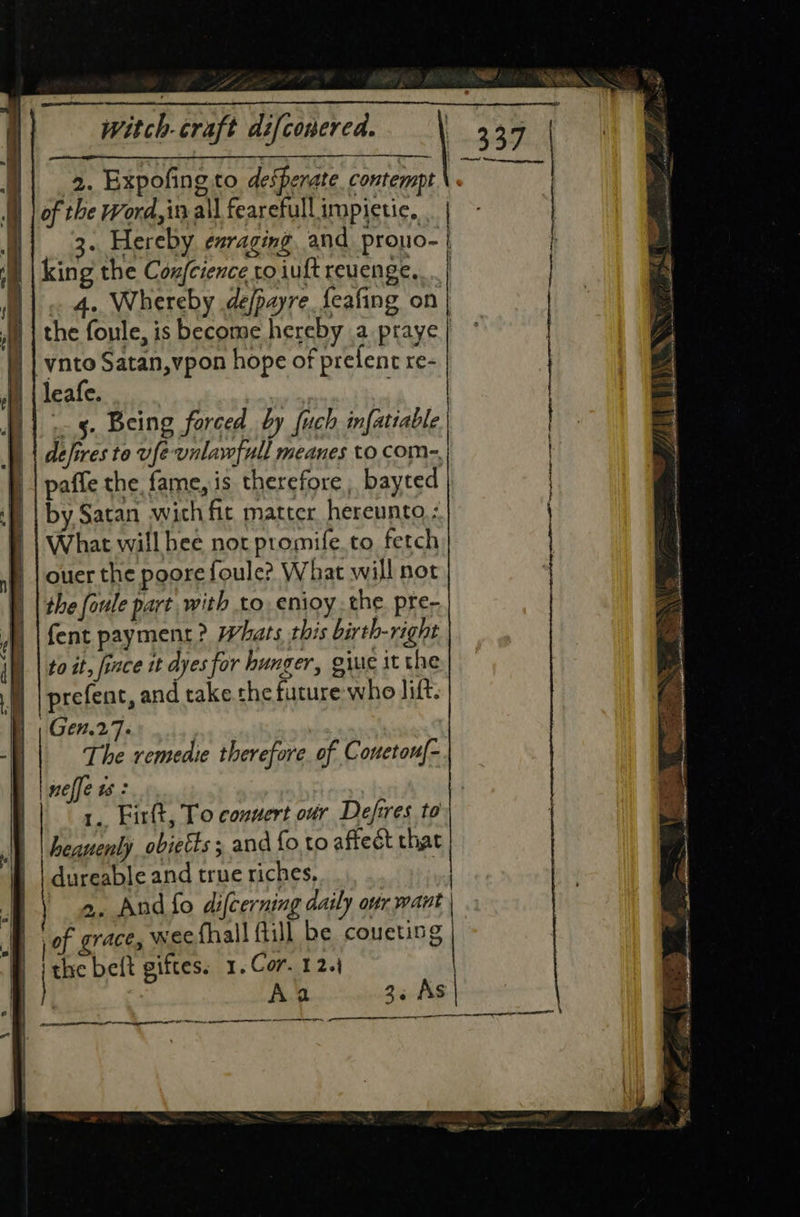 witch-craft diſcouered.
337
2. Expoſing to deſperate contempt
of the Word, in all fearefull impietie.
3. Hereby enraging and prouo-
king the Conſcience to iuſt reuenge.
4. Whereby deſpayre ſeaſing on
the ſoule, is become hereby a praye
vnto Satan, vpon hope of preſent re-
leaſe.
5. Being forced by ſuch inſatiable
deſires to vſe vnlawfull meanes to com-
paſſe the ſame, is therefore bayted
by Satan with fit matter hereunto:
What will hee not promiſe to fetch
ouer the poore ſoule? What will not
the ſoule part with to enioy the pre-
ſent payment? Whats this birth-right
to it, ſince it dyes for hunger, giue it the
preſent, and take the future who liſt.
Gen.27.
The remedie therefore of Couetouſ-
neſſe is:
1. Firſt, To conuert our Deſires to
heauenly obiects; and ſo to affect that
dureable and true riches.
2. And ſo diſcerning daily our want
of grace, wee ſhall ſtill be coueting
the beſt giftes. 1. Cor. 12.
Aa 3. As